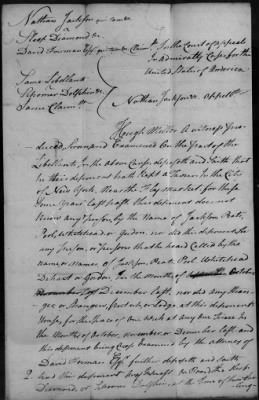 Nathan Jackson qui tam &c
Sloop Diamond &c
David Forman Esqr Claimt
In the Court of Appeals
in Admiralty Cases for the
United States of America
Same Libellant
Schooner Dolphin &c
Same Claimt
Nathan Jackson &c Appellt
Hough Minter A witness Pro
duced Sworn and Examined On the part of the
Libellants, In the above Cause, deposeth and Saith that
he this deponent hath Kept a House In the City
of New York Near the Fly Market for these
Some Years last past this deponent does not
Know any person, by the Name of Jackson, Peat,
Pole, Whitehead or Gordon, nor did this deponent for
any person, or persons that he heard Called by the
name or names, of Jackson, Peat, Pol, Whitehead
Dehart or Gordon, In the Months of October
November, Or December last, nor did any Stran
ger or Strangers, frequent, or Lodge at this deponents
House, for the space of One Week at any One time In
the Months of October, November, or December last, and
this deponent being Cross Examined by the Attorney of
David Forman Esqr further deposeth and saith
2
had this deponent Any Interest in
Diamond, or Schooner Dolphin at the time of their